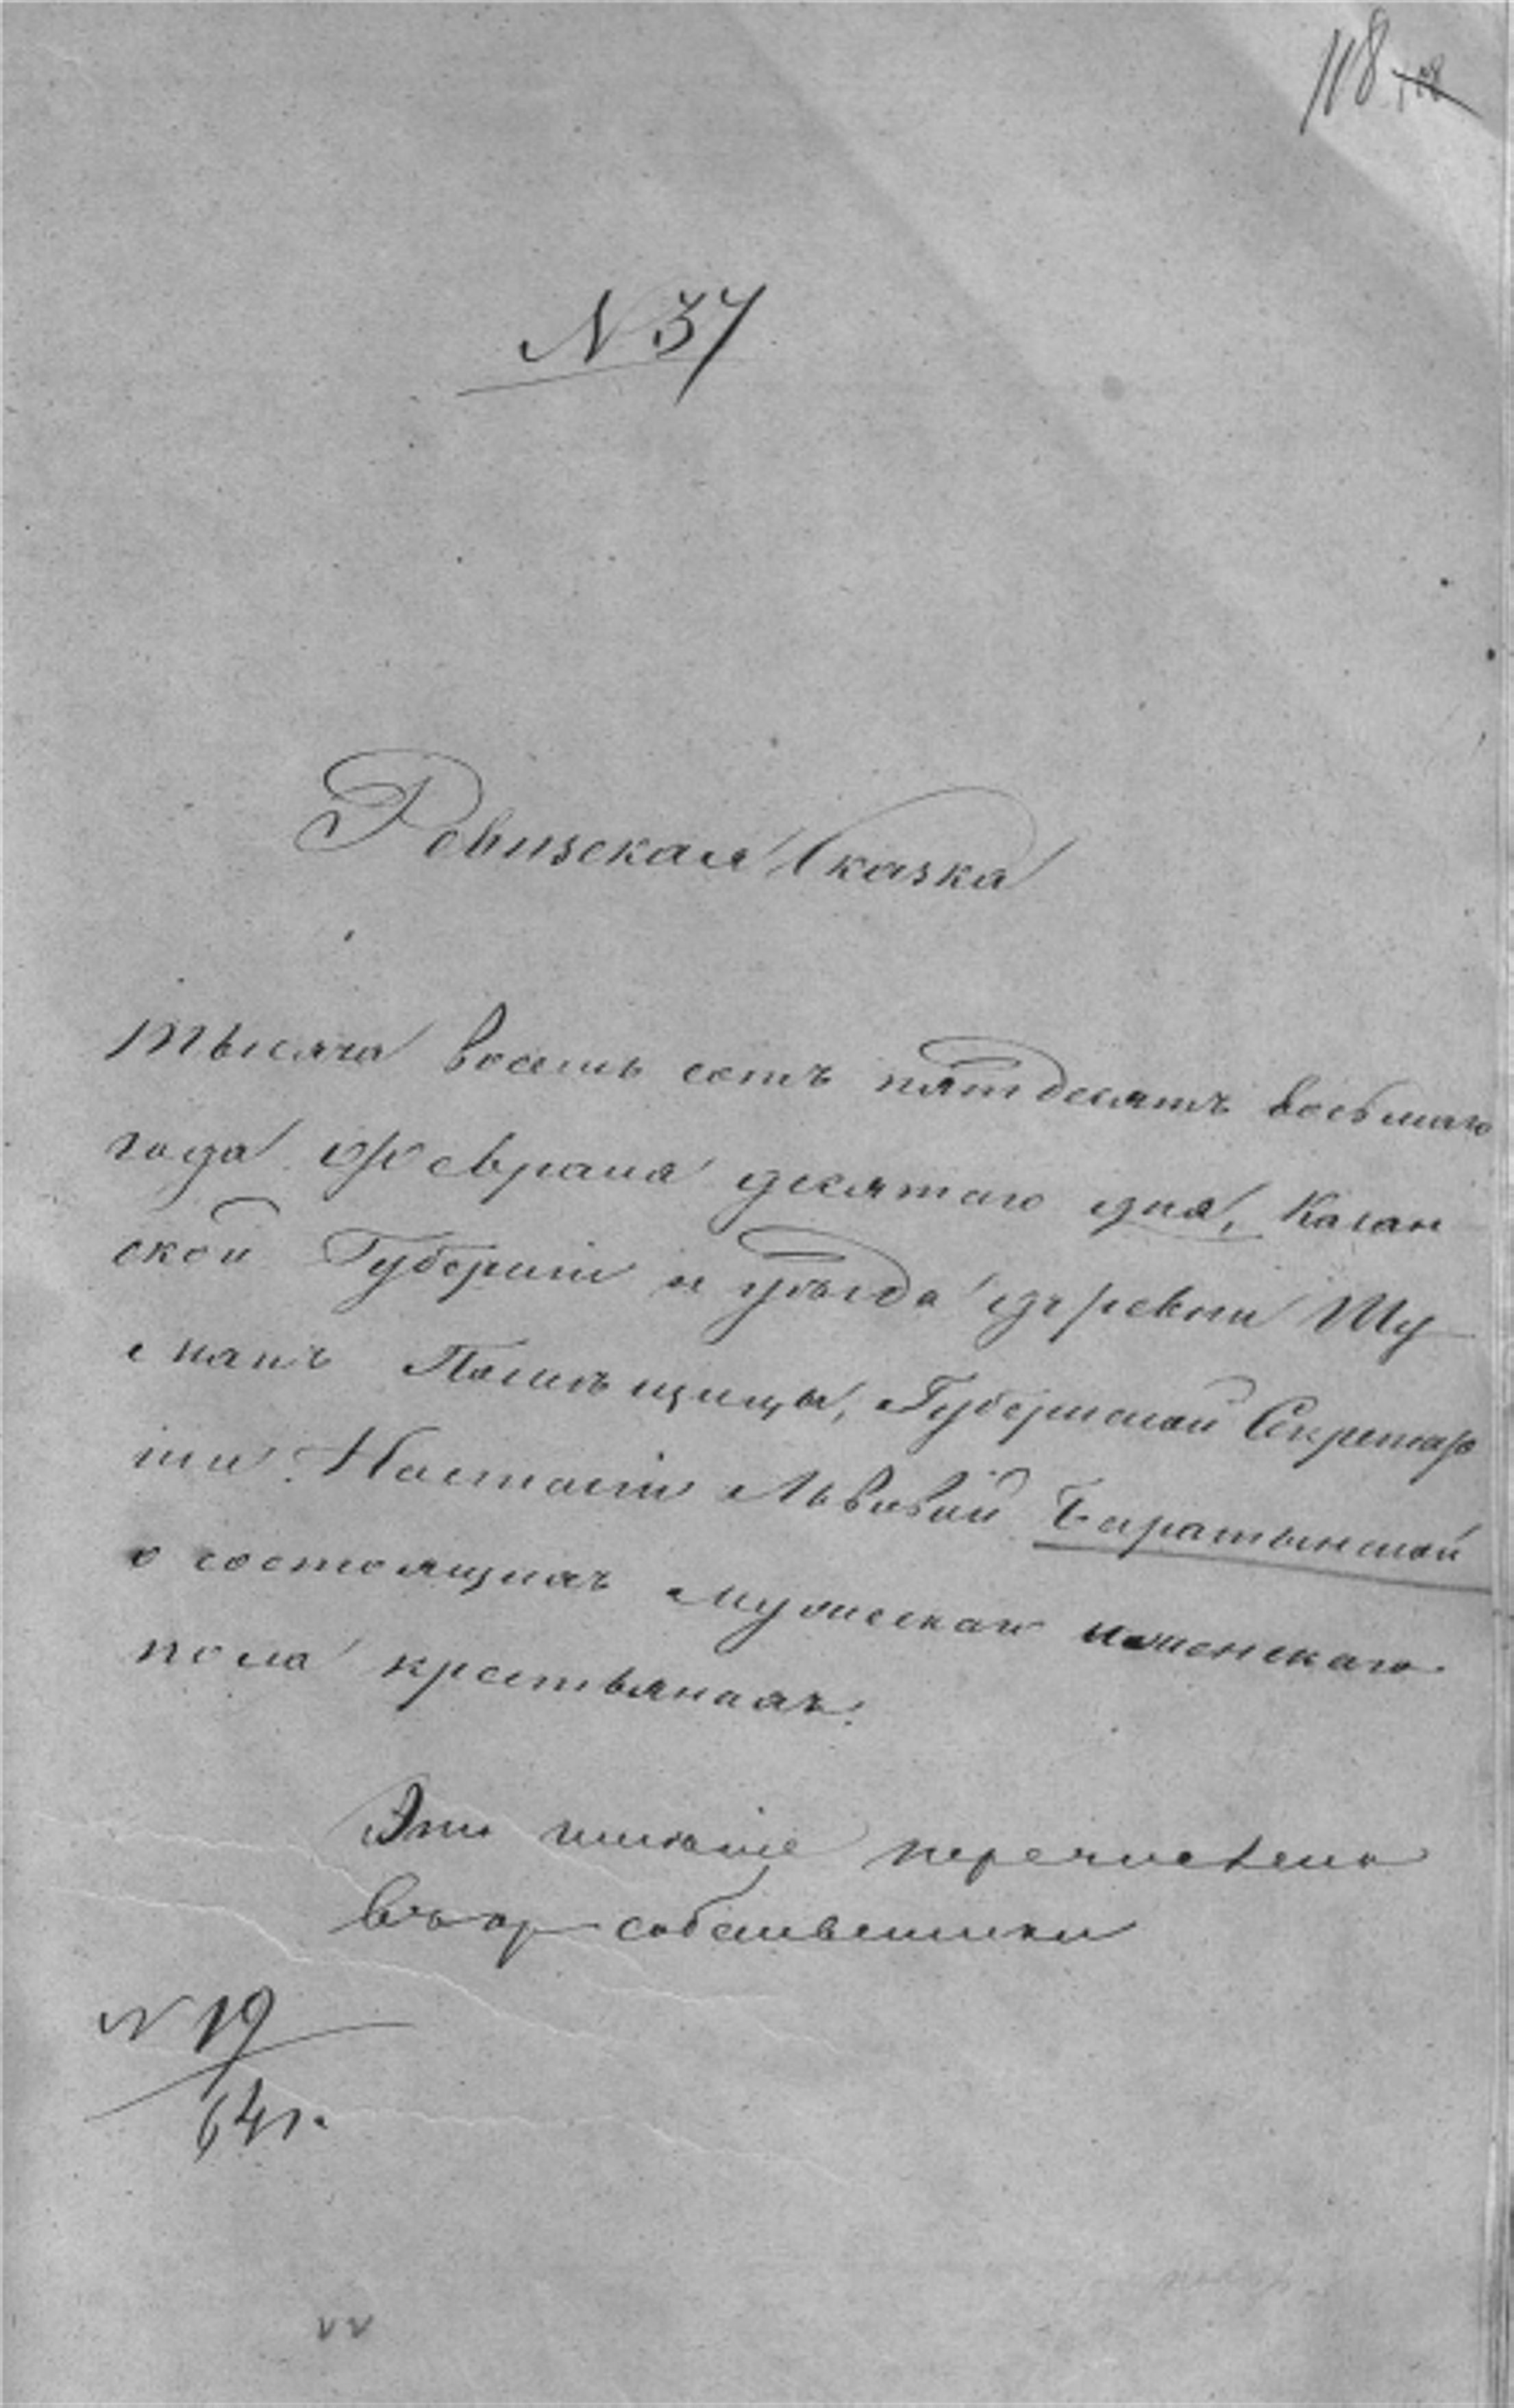 118
N 37
Ревизская Сказка
Тысяча восемь сотъ пятдесятъ восьмаго
года Февраля десятаго дня, Казан
ской Губерніи и уѣзда деревни Шу
шанъ Помѣщицы, Губернской Секретар
ши Настасіи Львовой Баратынской
о состоящихъ мужескаго и женскаго
пола крестьянахъ.
Эти имѣніе перечислено
въ кр собственники
N 19
64 г.